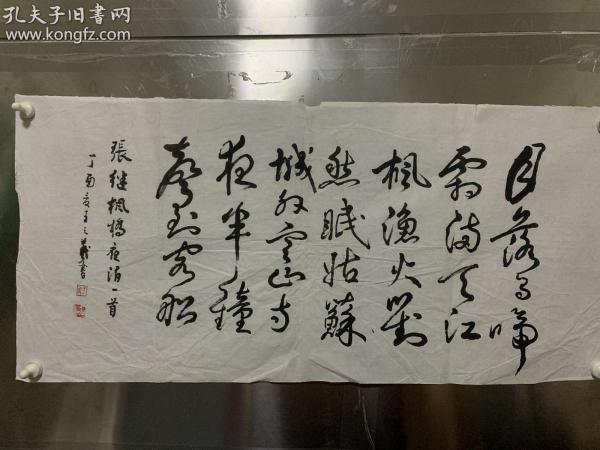 孔夫子旧书网
www.kongfz.com
月落烏啼
霜滿天江
楓漁火對
愁眠姑蘇
城外寒山寺
夜半鐘
聲到客船
張继楓橋夜泊一首
丁酉夏之義書